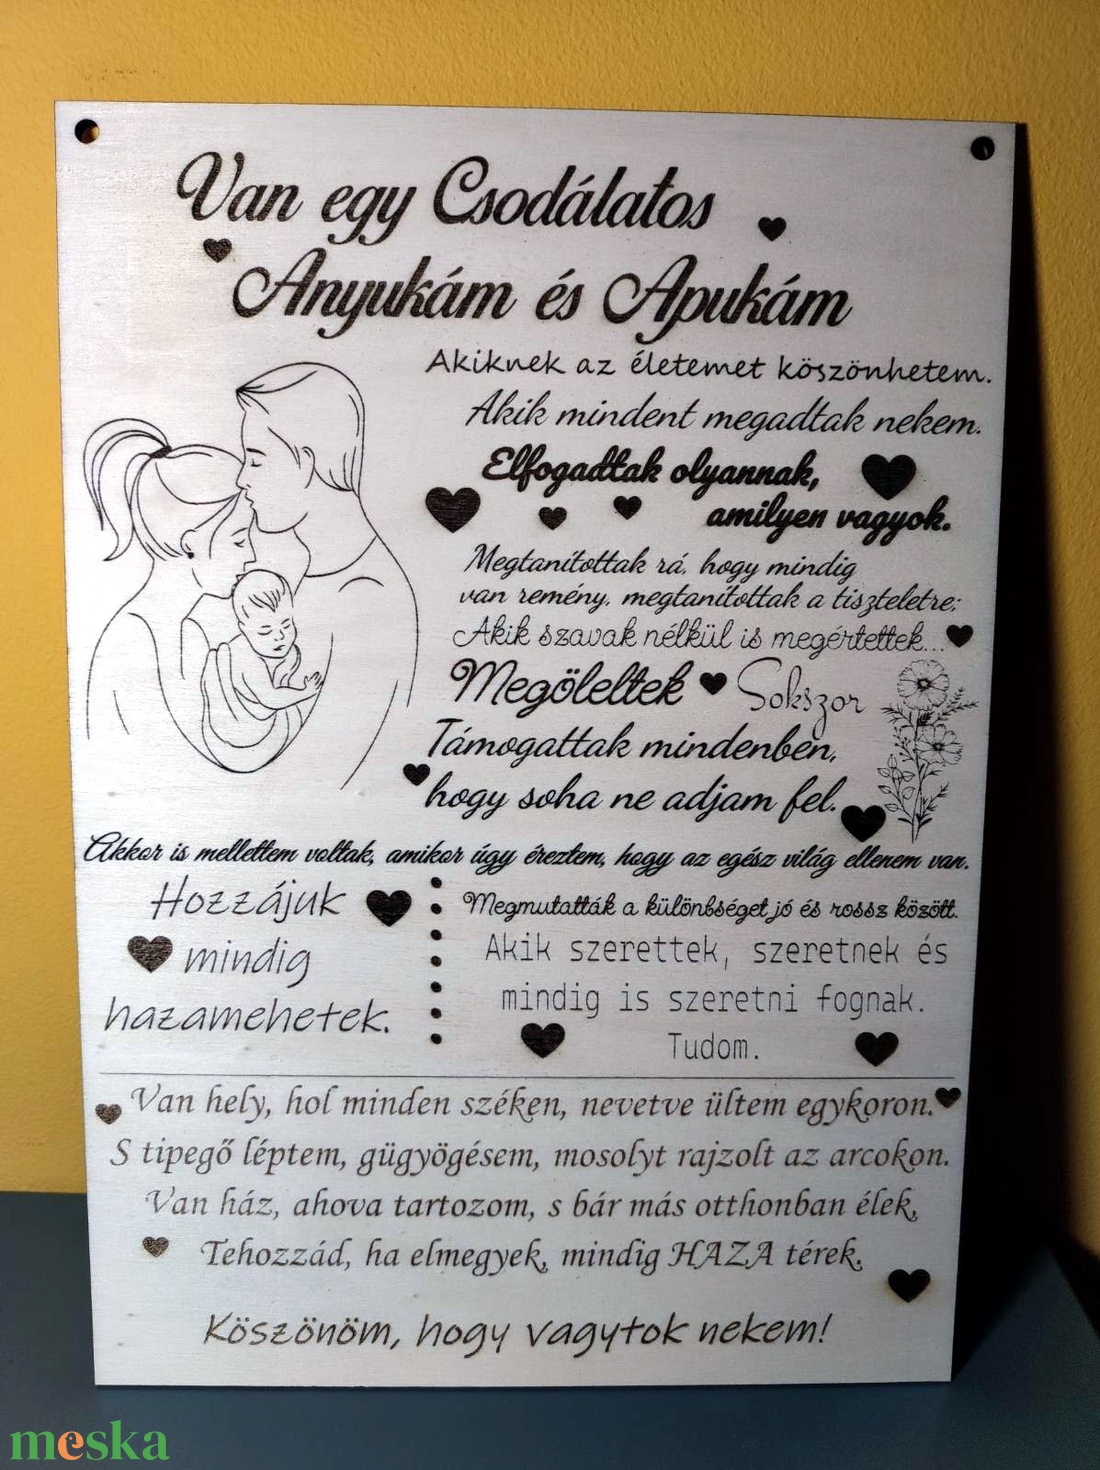 Van egy Csodálatos
Anyukám és Apukám
Akiknek az életemet köszönhetem.
Akik mindent megadtak nekem.
Elfogadtak olyannak,
amilyen vagyok.
Megtanítottak rá, hogy mindig
van remény, megtanítottak a tiszteletre;
Akik szavak nélkül is megértettek...
Megöleltek Sokszor
Támogattak mindenben,
hogy soha ne adjam fel.
Akkor is mellettem voltak, amikor úgy éreztem, hogy az egész világ ellenem van.
Hozzájuk
mindig
hazamehetek.
Megmutatták a különbséget jó és rossz között.
Akik szerettek, szeretnek és
mindig is szeretni fognak.
Tudom.
Van hely, hol minden széken, nevetve ültem egykoron.
S tipegő léptem, gügyögésem, mosolyt rajzolt az arcokon.
Van ház, ahova tartozom, s bár más otthonban élek,
Tehozzád, ha elmegyek, mindig HAZA térek.
Köszönöm, hogy vagytok nekem!
meska